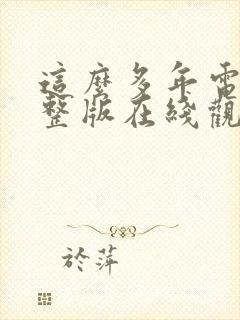 這麼多年電
整版在綫觀
於萍